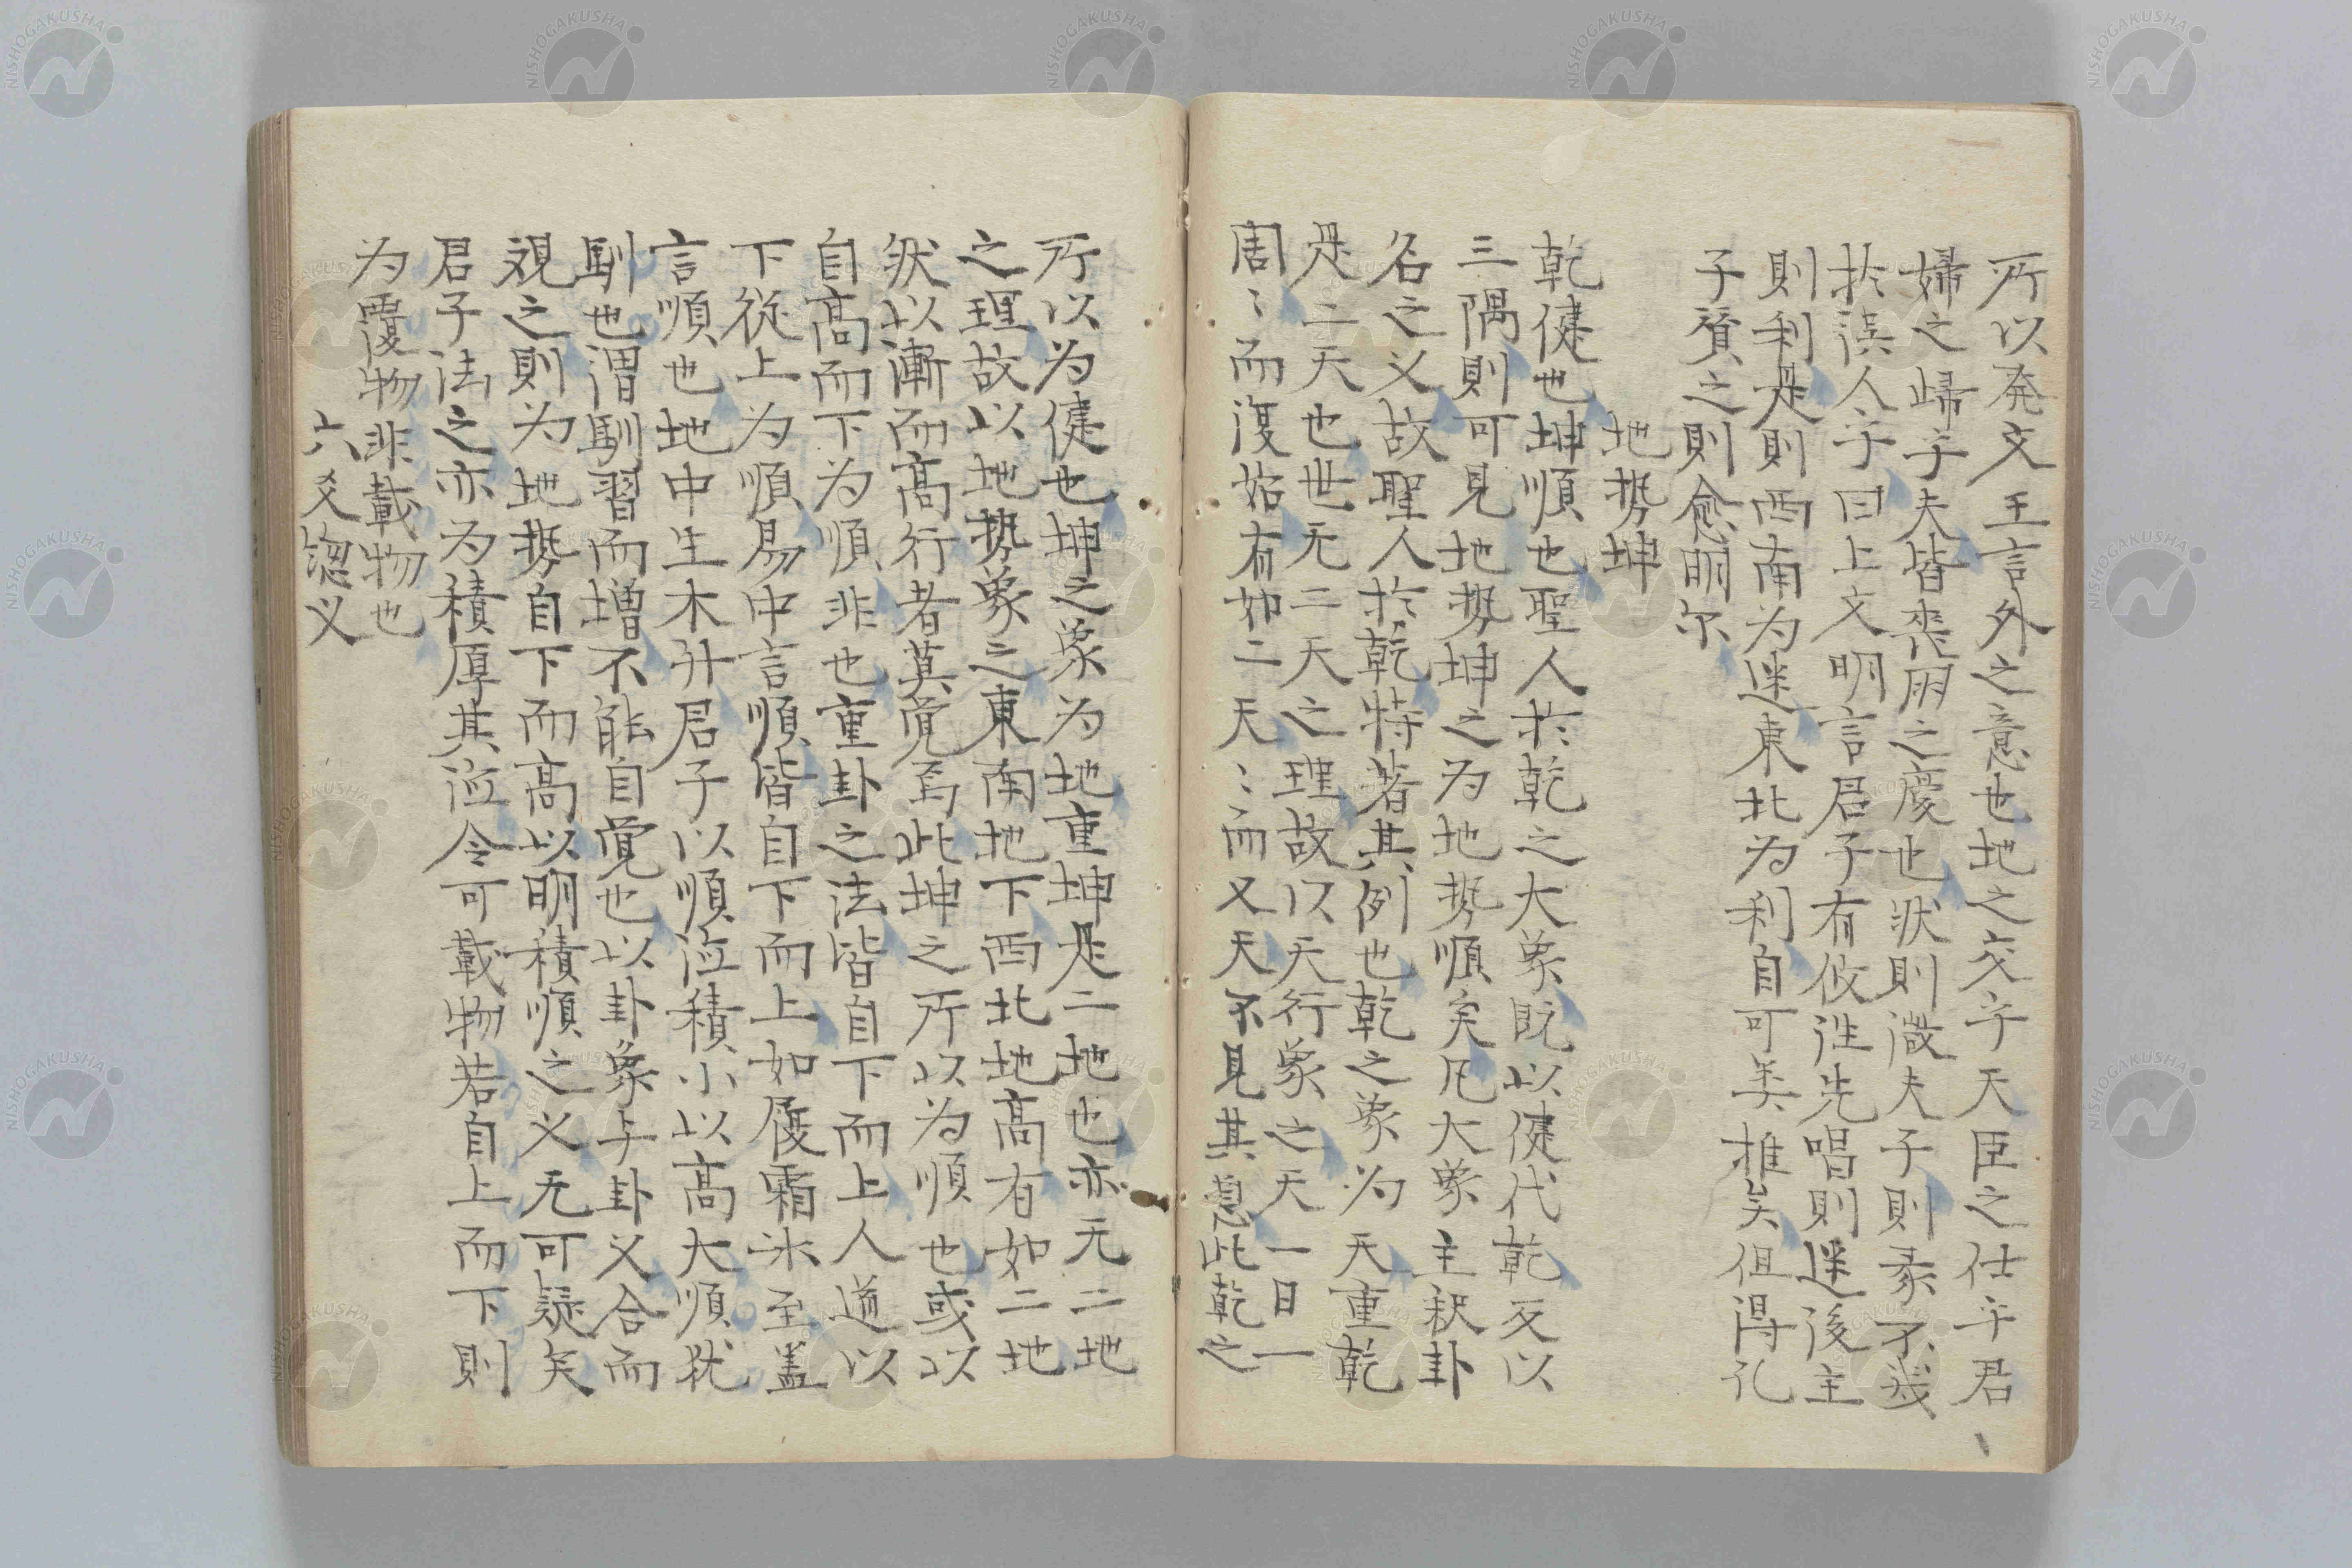 所以発文王言外之意也地之交乎天臣之仕乎君
婦之歸乎夫皆喪朋之慶也然則微夫子則彖不幾
於誤人乎曰上文明言君子有攸往先唱則迷後主
則利是則西南为迷東北为利自可类推矣但得孔
子賛之則愈明尔
地势坤
乾健也坤順也聖人於乾之大象既以健代乾反以
三隅則可見地势坤之为地势順矣凡大象主釈卦
名之义故聖人於乾特著其例也乾之象为天重乾
是二天也世无二天之理故以天行象之天一日一
周〻而復始有如二天〻而又天不見其息此乾之
所以为健也坤之象为地重坤是二地也亦无二地
之理故以地势象之東南地下西北地高有如二地
然以漸而高行者莫覚焉此坤之所以为順也或以
自高而下为順非也重卦之法皆自下而上人道以
下從上为順易中言順皆自下而上如履霜氷至盖
言順也地中生木升君子以順徳積小以高大順犹
馴也謂馴習而增不能自覚也以卦象与卦义合而
观之則为地势自下而高以明積順之义无可疑矣
君子法之亦为積厚其徳令可載物若自上而下則
为覆物非載物也
六爻総义
NISHOGAKUSHA